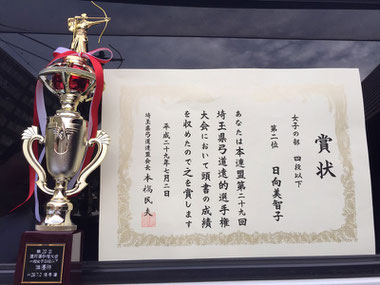 賞状
女子の部 四段以下
第二位 日向美智子
あなたは本連盟第二十九回
埼玉県弓道遠的選手権
大会において頭書の成績
を収めたので之を賞します
平成二十九年七月二日
埼玉県弓道連盟会長
準優勝